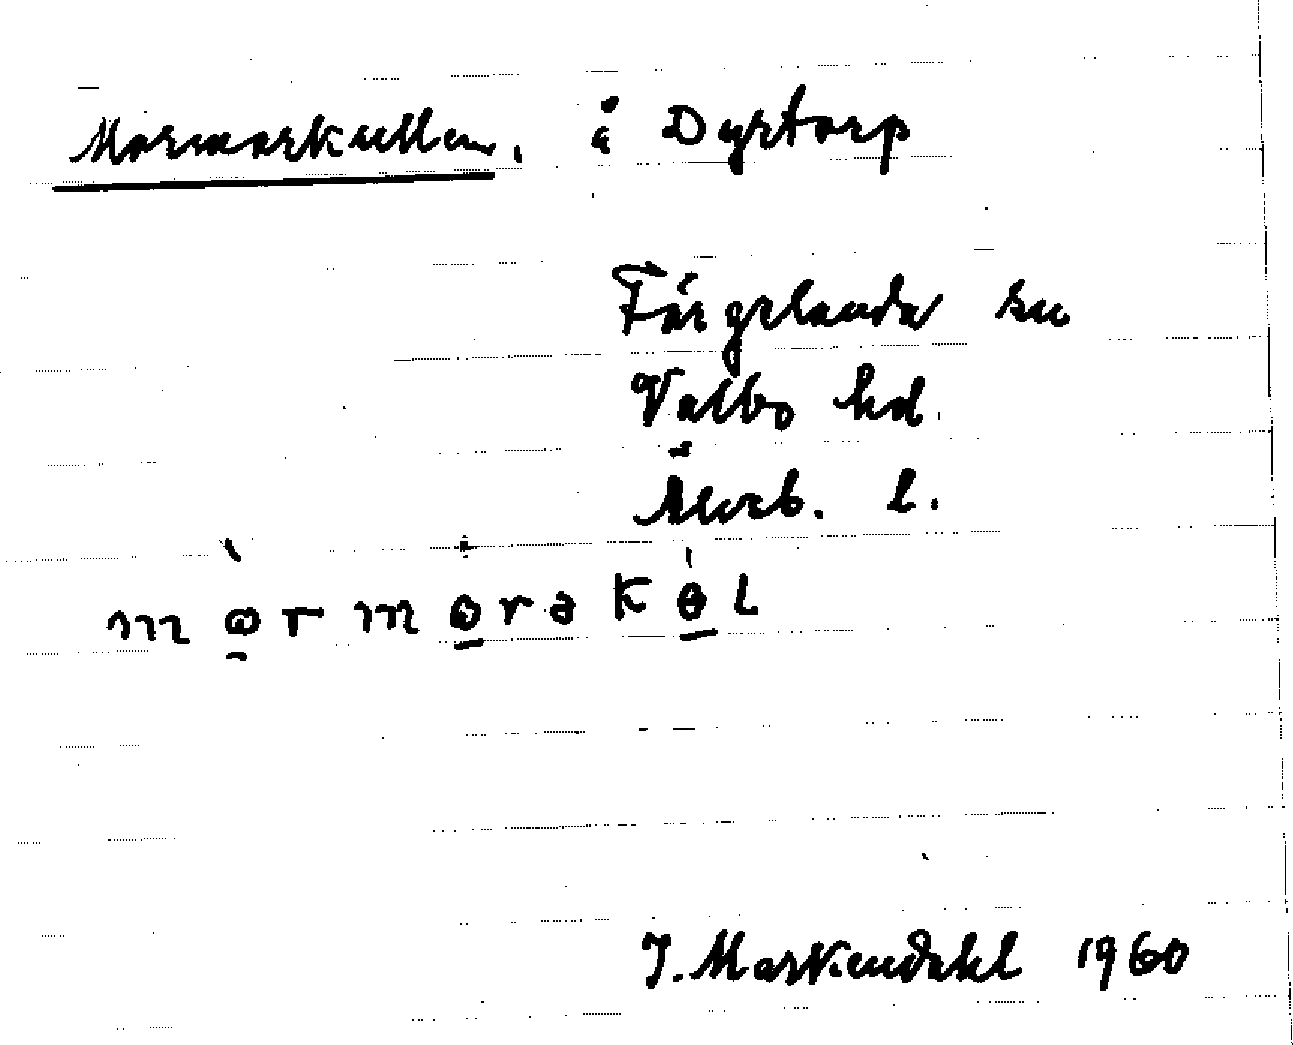 Mormorkullen. å Dyrtorp
Färgelanda sn
Valbo hd.
Älvsb. l.
mɵrmɵrəkɵ̀l
J. Markendahl 1960